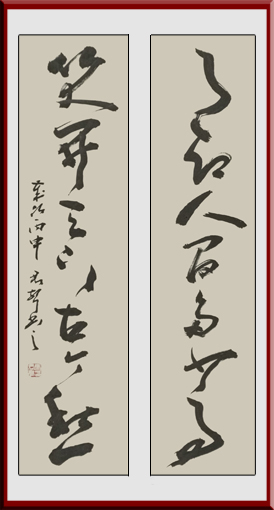 了却人間多少事
笑開天下古今愁
歲次丙申